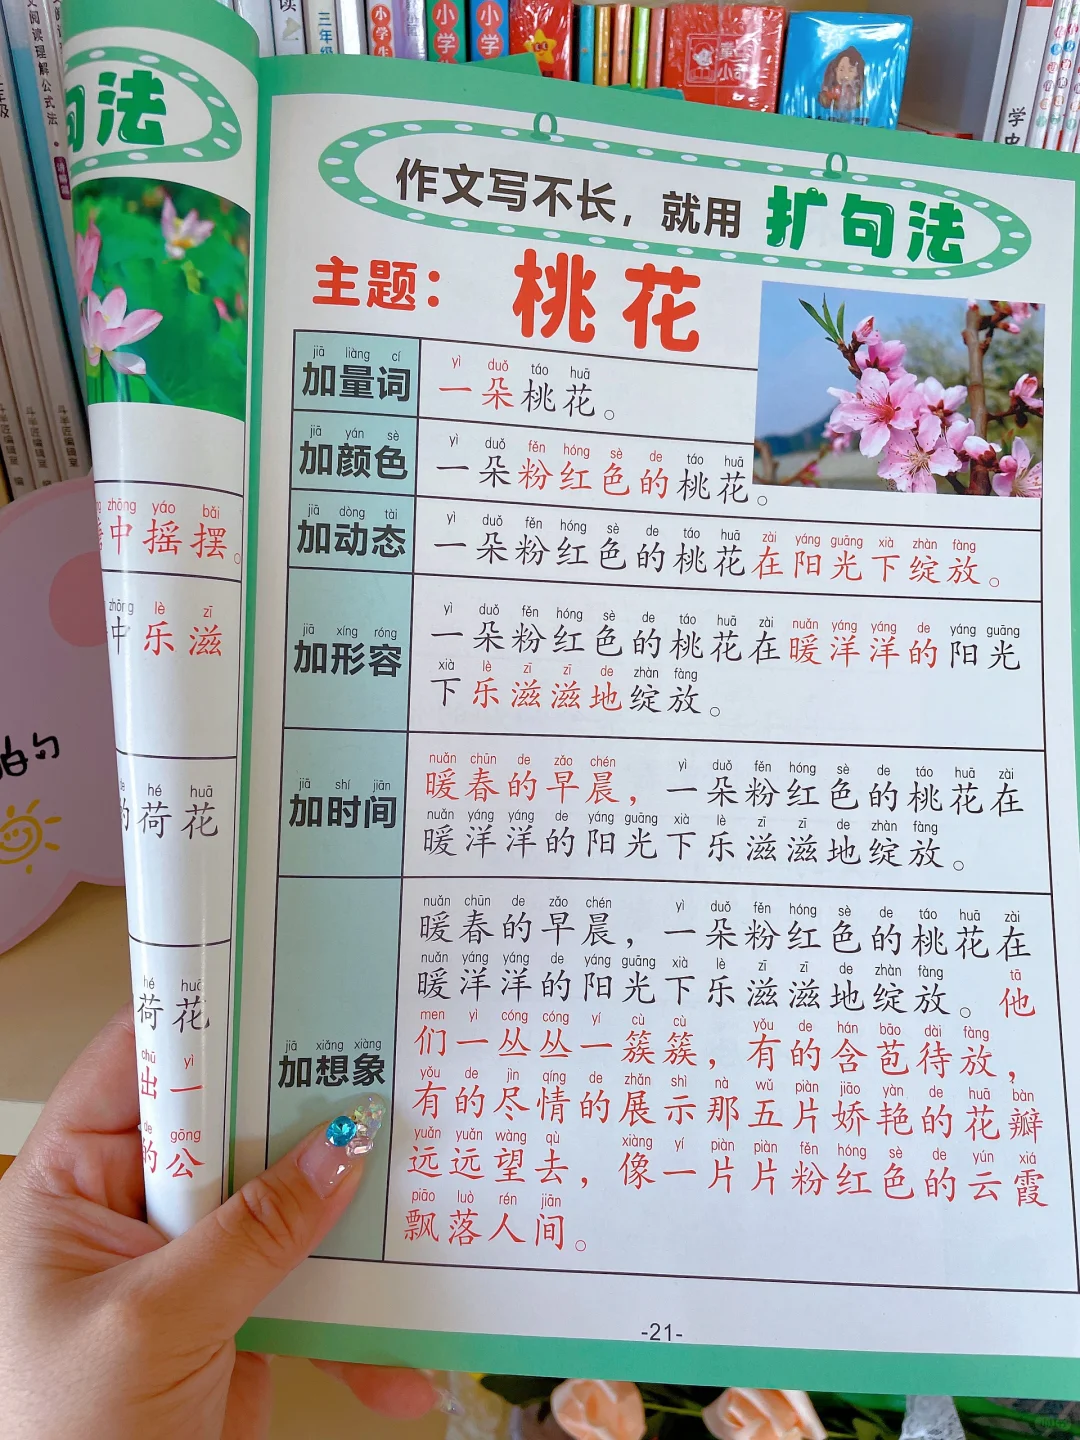 三年级
小学生
小学
小学
阅读理解公式法
学史
句法
作文写不长，就用 扩句法
主题： 桃花
jiā liàng cí
加量词
yì duǒ táo huā
一朵桃花。
jiā yán sè
加颜色
yì duǒ fěn hóng sè de táo huā
一朵粉红色的桃花。
jiā dòng tài
加动态
yì duǒ fěn hóng sè de táo huā zài yáng guāng xià zhàn fàng
一朵粉红色的桃花在阳光下绽放。
jiā xíng róng
加形容
yì duǒ fěn hóng sè de táo huā zài nuǎn yáng yáng de yáng guāng
一朵粉红色的桃花在暖洋洋的阳光
xià lè zī zī de zhàn fàng
下乐滋滋地绽放。
jiā shí jiān
加时间
nuǎn chūn de zǎo chén yì duǒ fěn hóng sè de táo huā zài
暖春的早晨，一朵粉红色的桃花在
nuǎn yáng yáng de yáng guāng xià lè zī zī de zhàn fàng
暖洋洋的阳光下乐滋滋地绽放。
jiā xiǎng xiàng
加想象
nuǎn chūn de zǎo chén yì duǒ fěn hóng sè de táo huā zài
暖春的早晨，一朵粉红色的桃花在
nuǎn yáng yáng de yáng guāng xià lè zī zī de zhàn fàng tā
暖洋洋的阳光下乐滋滋地绽放。他
men yì cóng cóng yí cù cù yǒu de hán bāo dài fàng
们一丛丛一簇簇，有的含苞待放，
yǒu de jìn qíng de zhǎn shì nà wǔ piàn jiāo yàn de huā bàn
有的尽情的展示那五片娇艳的花瓣
yuǎn yuǎn wàng qù xiàng yí piàn piàn fěn hóng sè de yún xiá
远远望去，像一片片粉红色的云霞
piāo luò rén jiān
飘落人间。
-21-
zhōng yáo bǎi
中摇摆。
zhōng lè zī
中乐滋
de hé huā
的荷花
hé huā
荷花
chū yì
出一
de gōng
的公